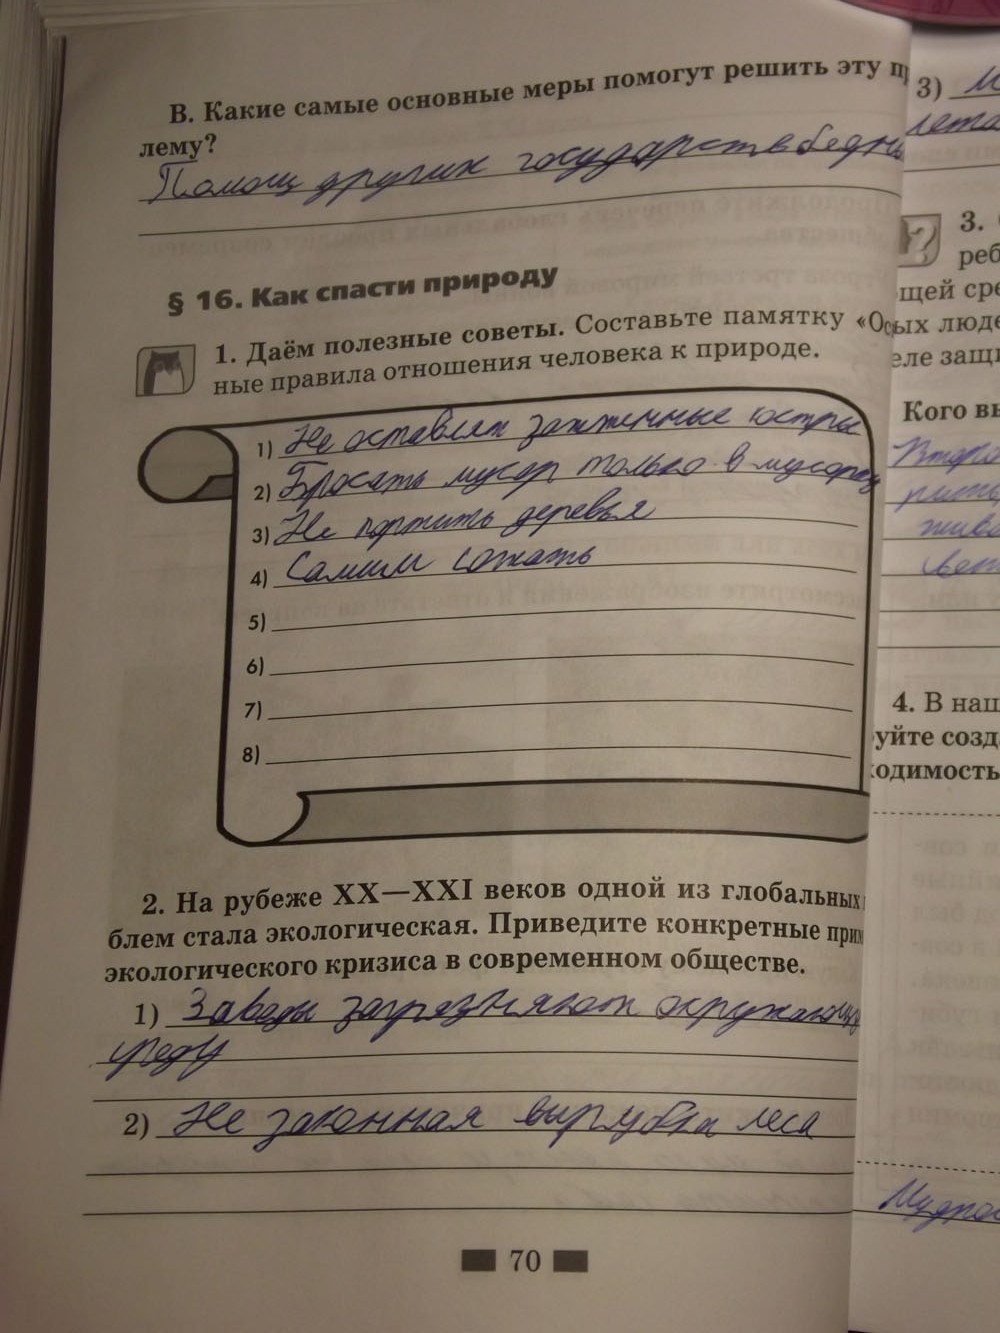 В. Какие самые основные меры помогут решить эту п
лему?
Помощ других государств бедны
§ 16. Как спасти природу
1. Даём полезные советы. Составьте памятку «Ос
ные правила отношения человека к природе.
1) Не оставлят зажженные костры
2) Бросать мусор только в мусорку
3) Не портить деревья
4) Самим сажать
5)
6)
7)
8)
2. На рубеже XX—XXI веков одной из глобальных
блем стала экологическая. Приведите конкретные прим
экологического кризиса в современном обществе.
1) Заводы загрязняют окружающую
среду
2) Не законная вырубка леса
70
3)
3.
реб
щей сре
ых люде
еле защи
Кого вы
4. В наш
уйте созд
ходимость